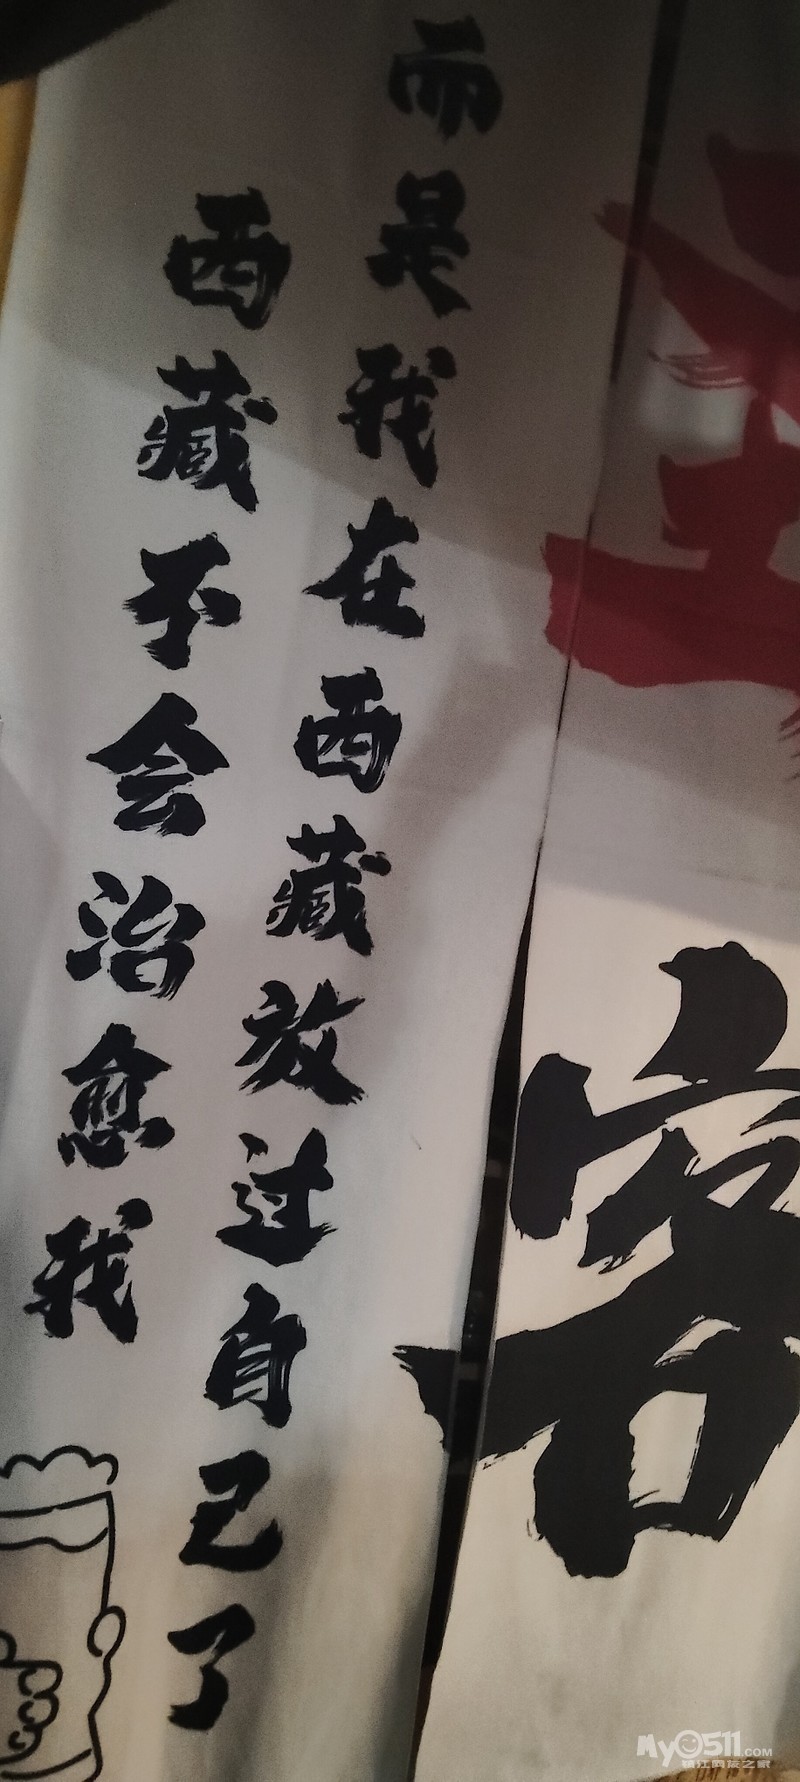 西藏不会治愈我
而是我在西藏放过自己了
客
My0511.COM
镇江网友之家